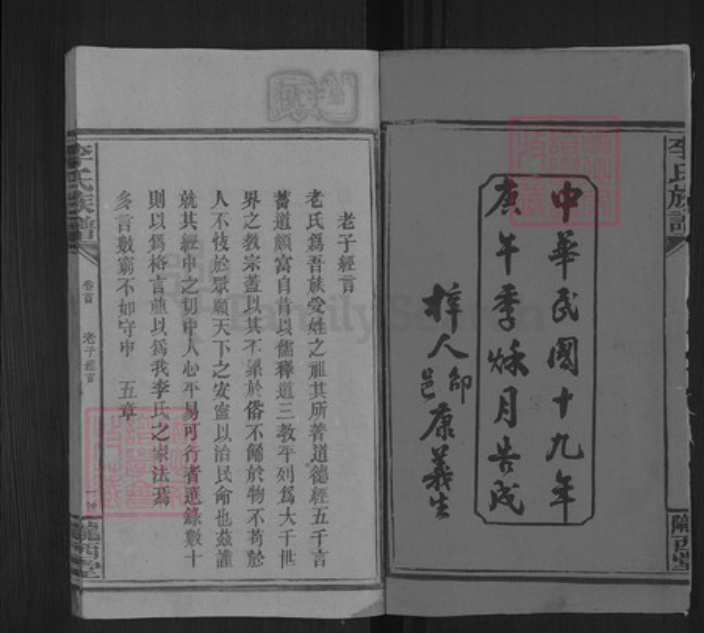 李氏族譜
中華民國十九年
庚午季秌月告成
梓人邵邑康義生
隴西堂
老子經言
老氏爲吾族受姓之祖其所著道德經五千言
蓄道頗富自昔以儒釋道三敎平列爲大千世
界之敎宗蓋以其不累於俗不餙於物不苟於
人不忮於眾願天下之安寍以治民命也茲謹
就其經中之切中人心平易可行者選錄數十
則以爲格言並以爲我李氏之家法焉
多言數窮不如守中 五章
李氏族譜
卷首
老子經言
一
隴西堂
FamilySearch